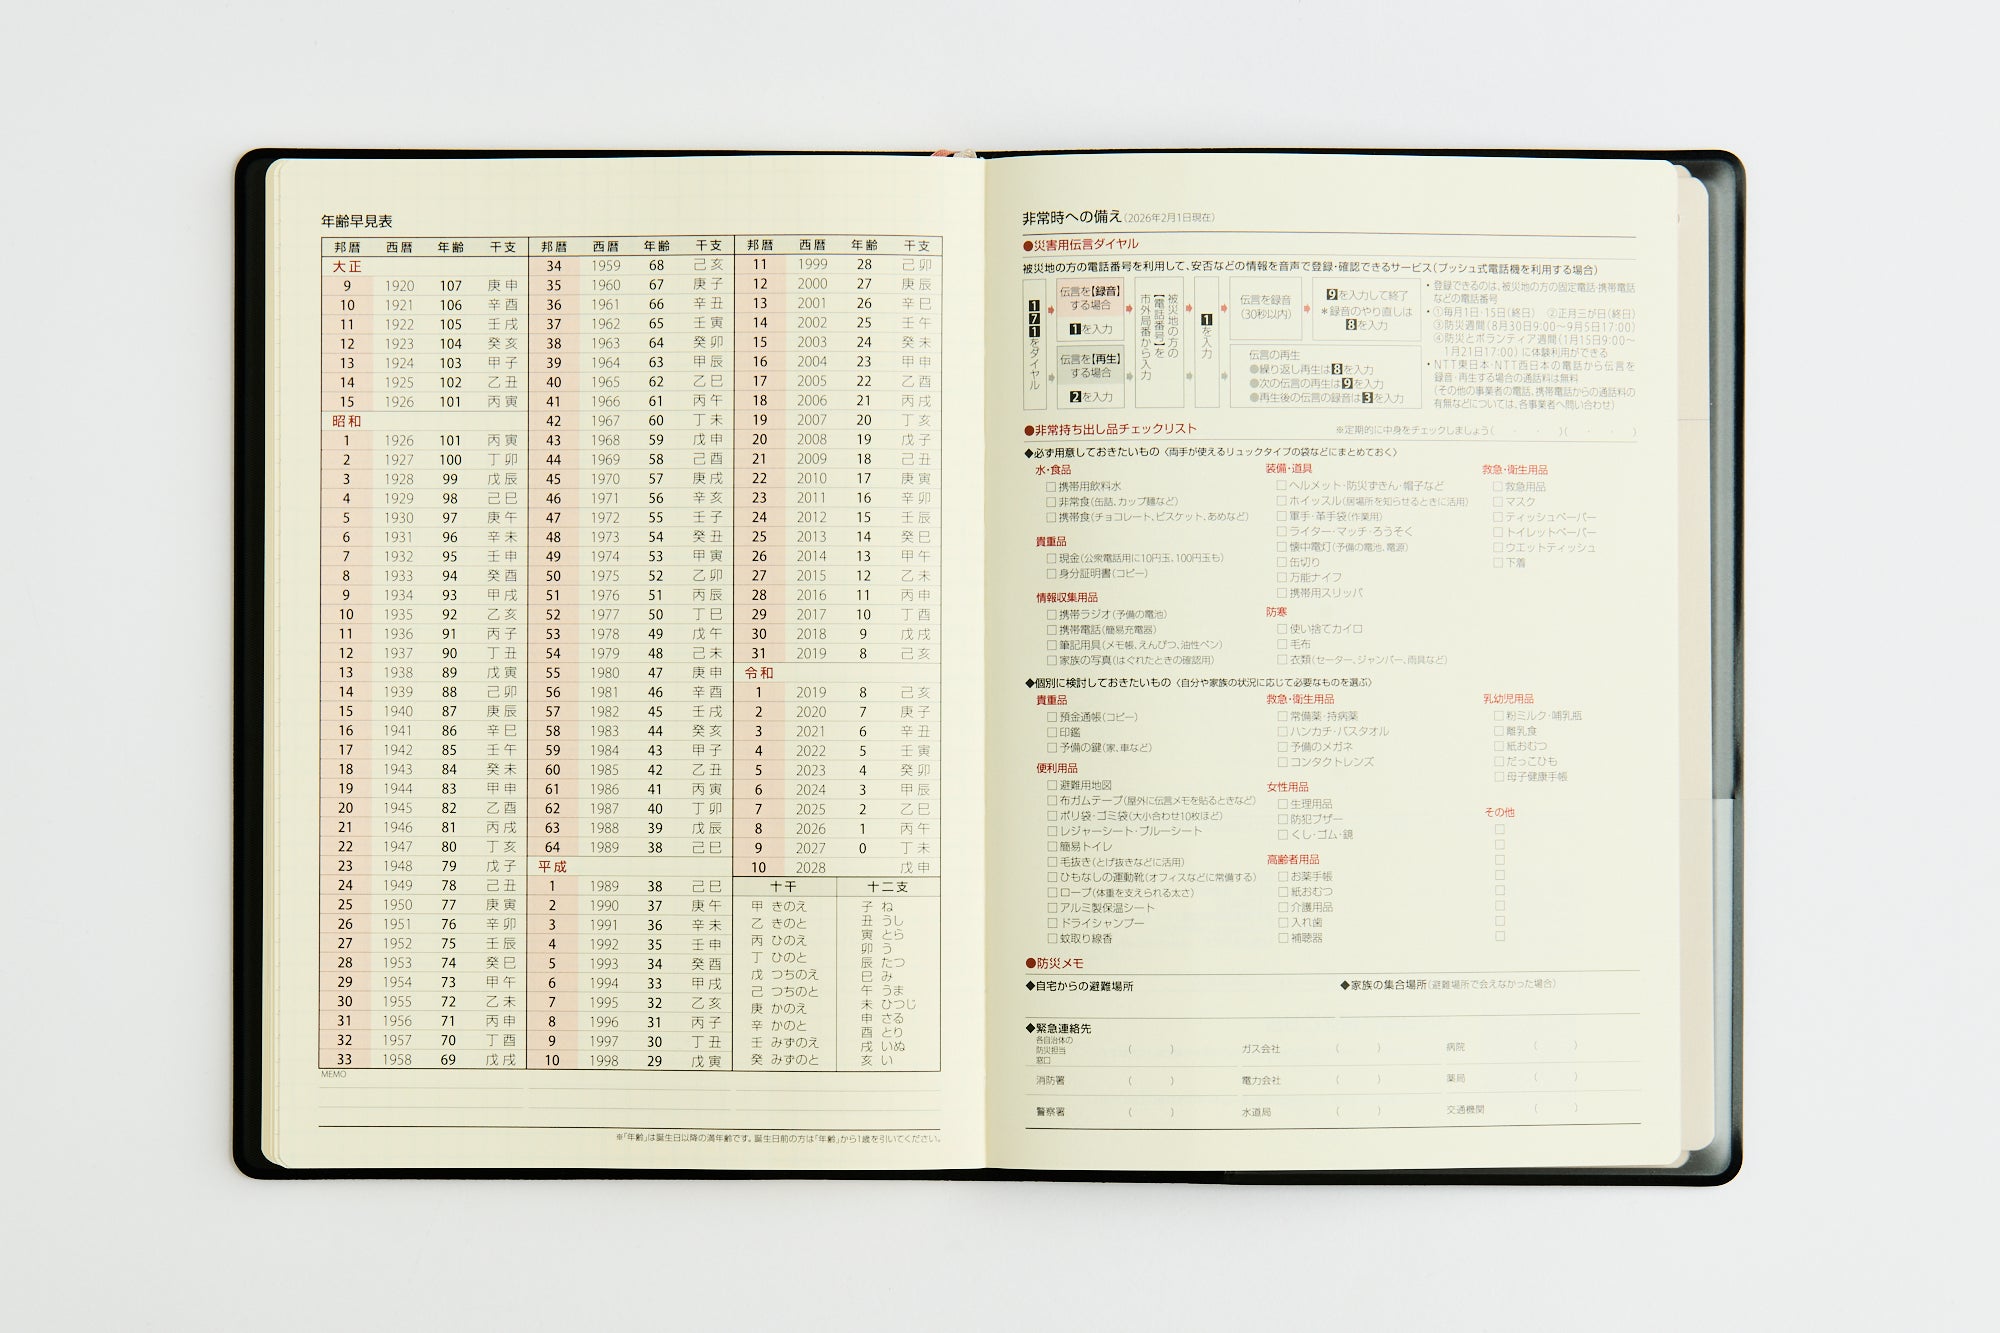 年齢早見表
邦暦 西暦 年齢 干支
大正
9 1920 107 庚申
10 1921 106 辛酉
11 1922 105 壬戌
12 1923 104 癸亥
13 1924 103 甲子
14 1925 102 乙丑
15 1926 101 丙寅
昭和
1 1926 101 丙寅
2 1927 100 丁卯
3 1928 99 戊辰
4 1929 98 己巳
5 1930 97 庚午
6 1931 96 辛未
7 1932 95 壬申
8 1933 94 癸酉
9 1934 93 甲戌
10 1935 92 乙亥
11 1936 91 丙子
12 1937 90 丁丑
13 1938 89 戊寅
14 1939 88 己卯
15 1940 87 庚辰
16 1941 86 辛巳
17 1942 85 壬午
18 1943 84 癸未
19 1944 83 甲申
20 1945 82 乙酉
21 1946 81 丙戌
22 1947 80 丁亥
23 1948 79 戊子
24 1949 78 己丑
25 1950 77 庚寅
26 1951 76 辛卯
27 1952 75 壬辰
28 1953 74 癸巳
29 1954 73 甲午
30 1955 72 乙未
31 1956 71 丙申
32 1957 70 丁酉
33 1958 69 戊戌
邦暦 西暦 年齢 干支
34 1959 68 己亥
35 1960 67 庚子
36 1961 66 辛丑
37 1962 65 壬寅
38 1963 64 癸卯
39 1964 63 甲辰
40 1965 62 乙巳
41 1966 61 丙午
42 1967 60 丁未
43 1968 59 戊申
44 1969 58 己酉
45 1970 57 庚戌
46 1971 56 辛亥
47 1972 55 壬子
48 1973 54 癸丑
49 1974 53 甲寅
50 1975 52 乙卯
51 1976 51 丙辰
52 1977 50 丁巳
53 1978 49 戊午
54 1979 48 己未
55 1980 47 庚申
56 1981 46 辛酉
57 1982 45 壬戌
58 1983 44 癸亥
59 1984 43 甲子
60 1985 42 乙丑
61 1986 41 丙寅
62 1987 40 丁卯
63 1988 39 戊辰
64 1989 38 己巳
平成
1 1989 38 己巳
2 1990 37 庚午
3 1991 36 辛未
4 1992 35 壬申
5 1993 34 癸酉
6 1994 33 甲戌
7 1995 32 乙亥
8 1996 31 丙子
9 1997 30 丁丑
10 1998 29 戊寅
邦暦 西暦 年齢 干支
11 1999 28 己卯
12 2000 27 庚辰
13 2001 26 辛巳
14 2002 25 壬午
15 2003 24 癸未
16 2004 23 甲申
17 2005 22 乙酉
18 2006 21 丙戌
19 2007 20 丁亥
20 2008 19 戊子
21 2009 18 己丑
22 2010 17 庚寅
23 2011 16 辛卯
24 2012 15 壬辰
25 2013 14 癸巳
26 2014 13 甲午
27 2015 12 乙未
28 2016 11 丙申
29 2017 10 丁酉
30 2018 9 戊戌
31 2019 8 己亥
令和
1 2019 8 己亥
2 2020 7 庚子
3 2021 6 辛丑
4 2022 5 壬寅
5 2023 4 癸卯
6 2024 3 甲辰
7 2025 2 乙巳
8 2026 1 丙午
9 2027 0 丁未
10 2028 戊申
十干
甲 きのえ
乙 きのと
丙 ひのえ
丁 ひのと
戊 つちのえ
己 つちのと
庚 かのえ
辛 かのと
壬 みずのえ
癸 みずのと
十二支
子 ね
丑 うし
寅 とら
卯 う
辰 たつ
巳 み
午 うま
未 ひつじ
申 さる
酉 とり
戌 いぬ
亥 い
MEMO
※「年齢」は誕生日以降の満年齢です。誕生日前の方は「年齢」から1歳を引いてください。
非常時への備え(2026年2月1日現在)
●災害用伝言ダイヤル
被災地の方の電話番号を利用して、安否などの情報を音声で登録・確認できるサービス(プッシュ式電話機を利用する場合)
171をダイヤル
伝言を【録音】
する場合
1を入力
伝言を【再生】
する場合
2を入力
被災地の方の
【電話番号】を
市外局番から入力
1を入力
伝言を録音
(30秒以内)
9を入力して終了
＊録音のやり直しは
8を入力
伝言の再生
●繰り返し再生は8を入力
●次の伝言の再生は9を入力
●再生後の伝言の録音は3を入力
・登録できるのは、被災地の方の固定電話・携帯電話
などの電話番号
・①毎月1日・15日(終日) ②正月三が日(終日)
③防災週間(8月30日9:00〜9月5日17:00)
④防災とボランティア週間(1月15日9:00〜
1月21日17:00) に体験利用ができる
・NTT東日本・NTT西日本の電話から伝言を
録音・再生する場合の通話料は無料
(その他の事業者の電話、携帯電話からの通話料の
有無などについては、各事業者へ問い合わせ)
●非常持ち出し品チェックリスト
※定期的に中身をチェックしましょう( ・ ・ )( ・ ・ )
◆必ず用意しておきたいもの〈両手が使えるリュックタイプの袋などにまとめておく〉
水・食品
□携帯用飲料水
□非常食(缶詰、カップ麺など)
□携帯食(チョコレート、ビスケット、あめなど)
貴重品
□現金(公衆電話用に10円玉、100円玉も)
□身分証明書(コピー)
情報収集用品
□携帯ラジオ(予備の電池)
□携帯電話(簡易充電器)
□筆記用具(メモ帳、えんぴつ、油性ペン)
□家族の写真(はぐれたときの確認用)
装備・道具
□ヘルメット・防災ずきん・帽子など
□ホイッスル(居場所を知らせるときに活用)
□軍手・革手袋(作業用)
□ライター・マッチ・ろうそく
□懐中電灯(予備の電池、電源)
□缶切り
□万能ナイフ
□携帯用スリッパ
防寒
□使い捨てカイロ
□毛布
□衣類(セーター、ジャンパー、雨具など)
救急・衛生用品
□救急用品
□マスク
□ティッシュペーパー
□トイレットペーパー
□ウエットティッシュ
□下着
◆個別に検討しておきたいもの〈自分や家族の状況に応じて必要なものを選ぶ〉
貴重品
□預金通帳(コピー)
□印鑑
□予備の鍵(家、車など)
便利用品
□避難用地図
□布ガムテープ(屋外に伝言メモを貼るときなど)
□ポリ袋・ゴミ袋(大小合わせ10枚ほど)
□レジャーシート・ブルーシート
□簡易トイレ
□毛抜き(とげ抜きなどに活用)
□ひもなしの運動靴(オフィスなどに常備する)
□ロープ(体重を支えられる太さ)
□アルミ製保温シート
□ドライシャンプー
□蚊取り線香
救急・衛生用品
□常備薬・持病薬
□ハンカチ・バスタオル
□予備のメガネ
□コンタクトレンズ
女性用品
□生理用品
□防犯ブザー
□くし・ゴム・鏡
高齢者用品
□お薬手帳
□紙おむつ
□介護用品
□入れ歯
□補聴器
乳幼児用品
□粉ミルク・哺乳瓶
□離乳食
□紙おむつ
□だっこひも
□母子健康手帳
その他
□
□
□
□
□
□
□
□
●防災メモ
◆自宅からの避難場所
◆家族の集合場所(避難場所で会えなかった場合)
◆緊急連絡先
各自治体の
防災担当
窓口
( ) ガス会社 ( ) 病院 ( )
消防署 ( ) 電力会社 ( ) 薬局 ( )
警察署 ( ) 水道局 ( ) 交通機関 ( )